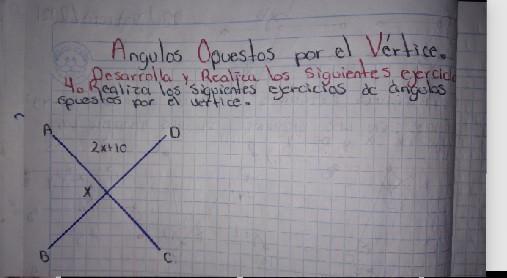 Angulos Opuestos por el Vértice.
Desarrolla y Realiza los siguientes
4. Realiza los siguientes ejercicios de ángulos
opuestos por el vertice.
A D
2x+10
x
B C